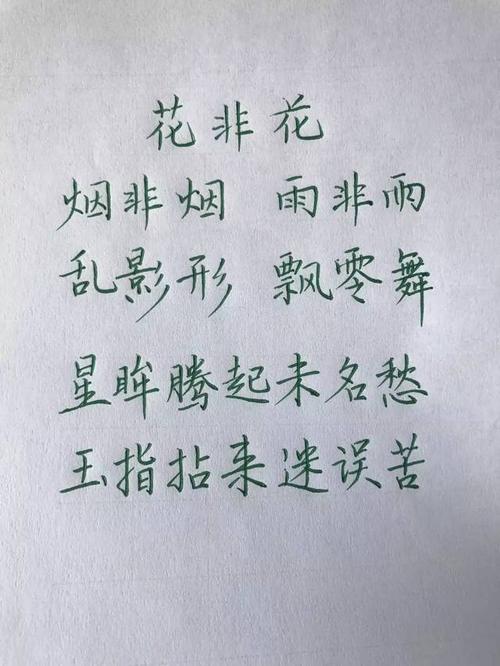 花非花
烟非烟 雨非雨
乱影形 飘零舞
星眸腾起未名愁
玉指拈来迷误苦